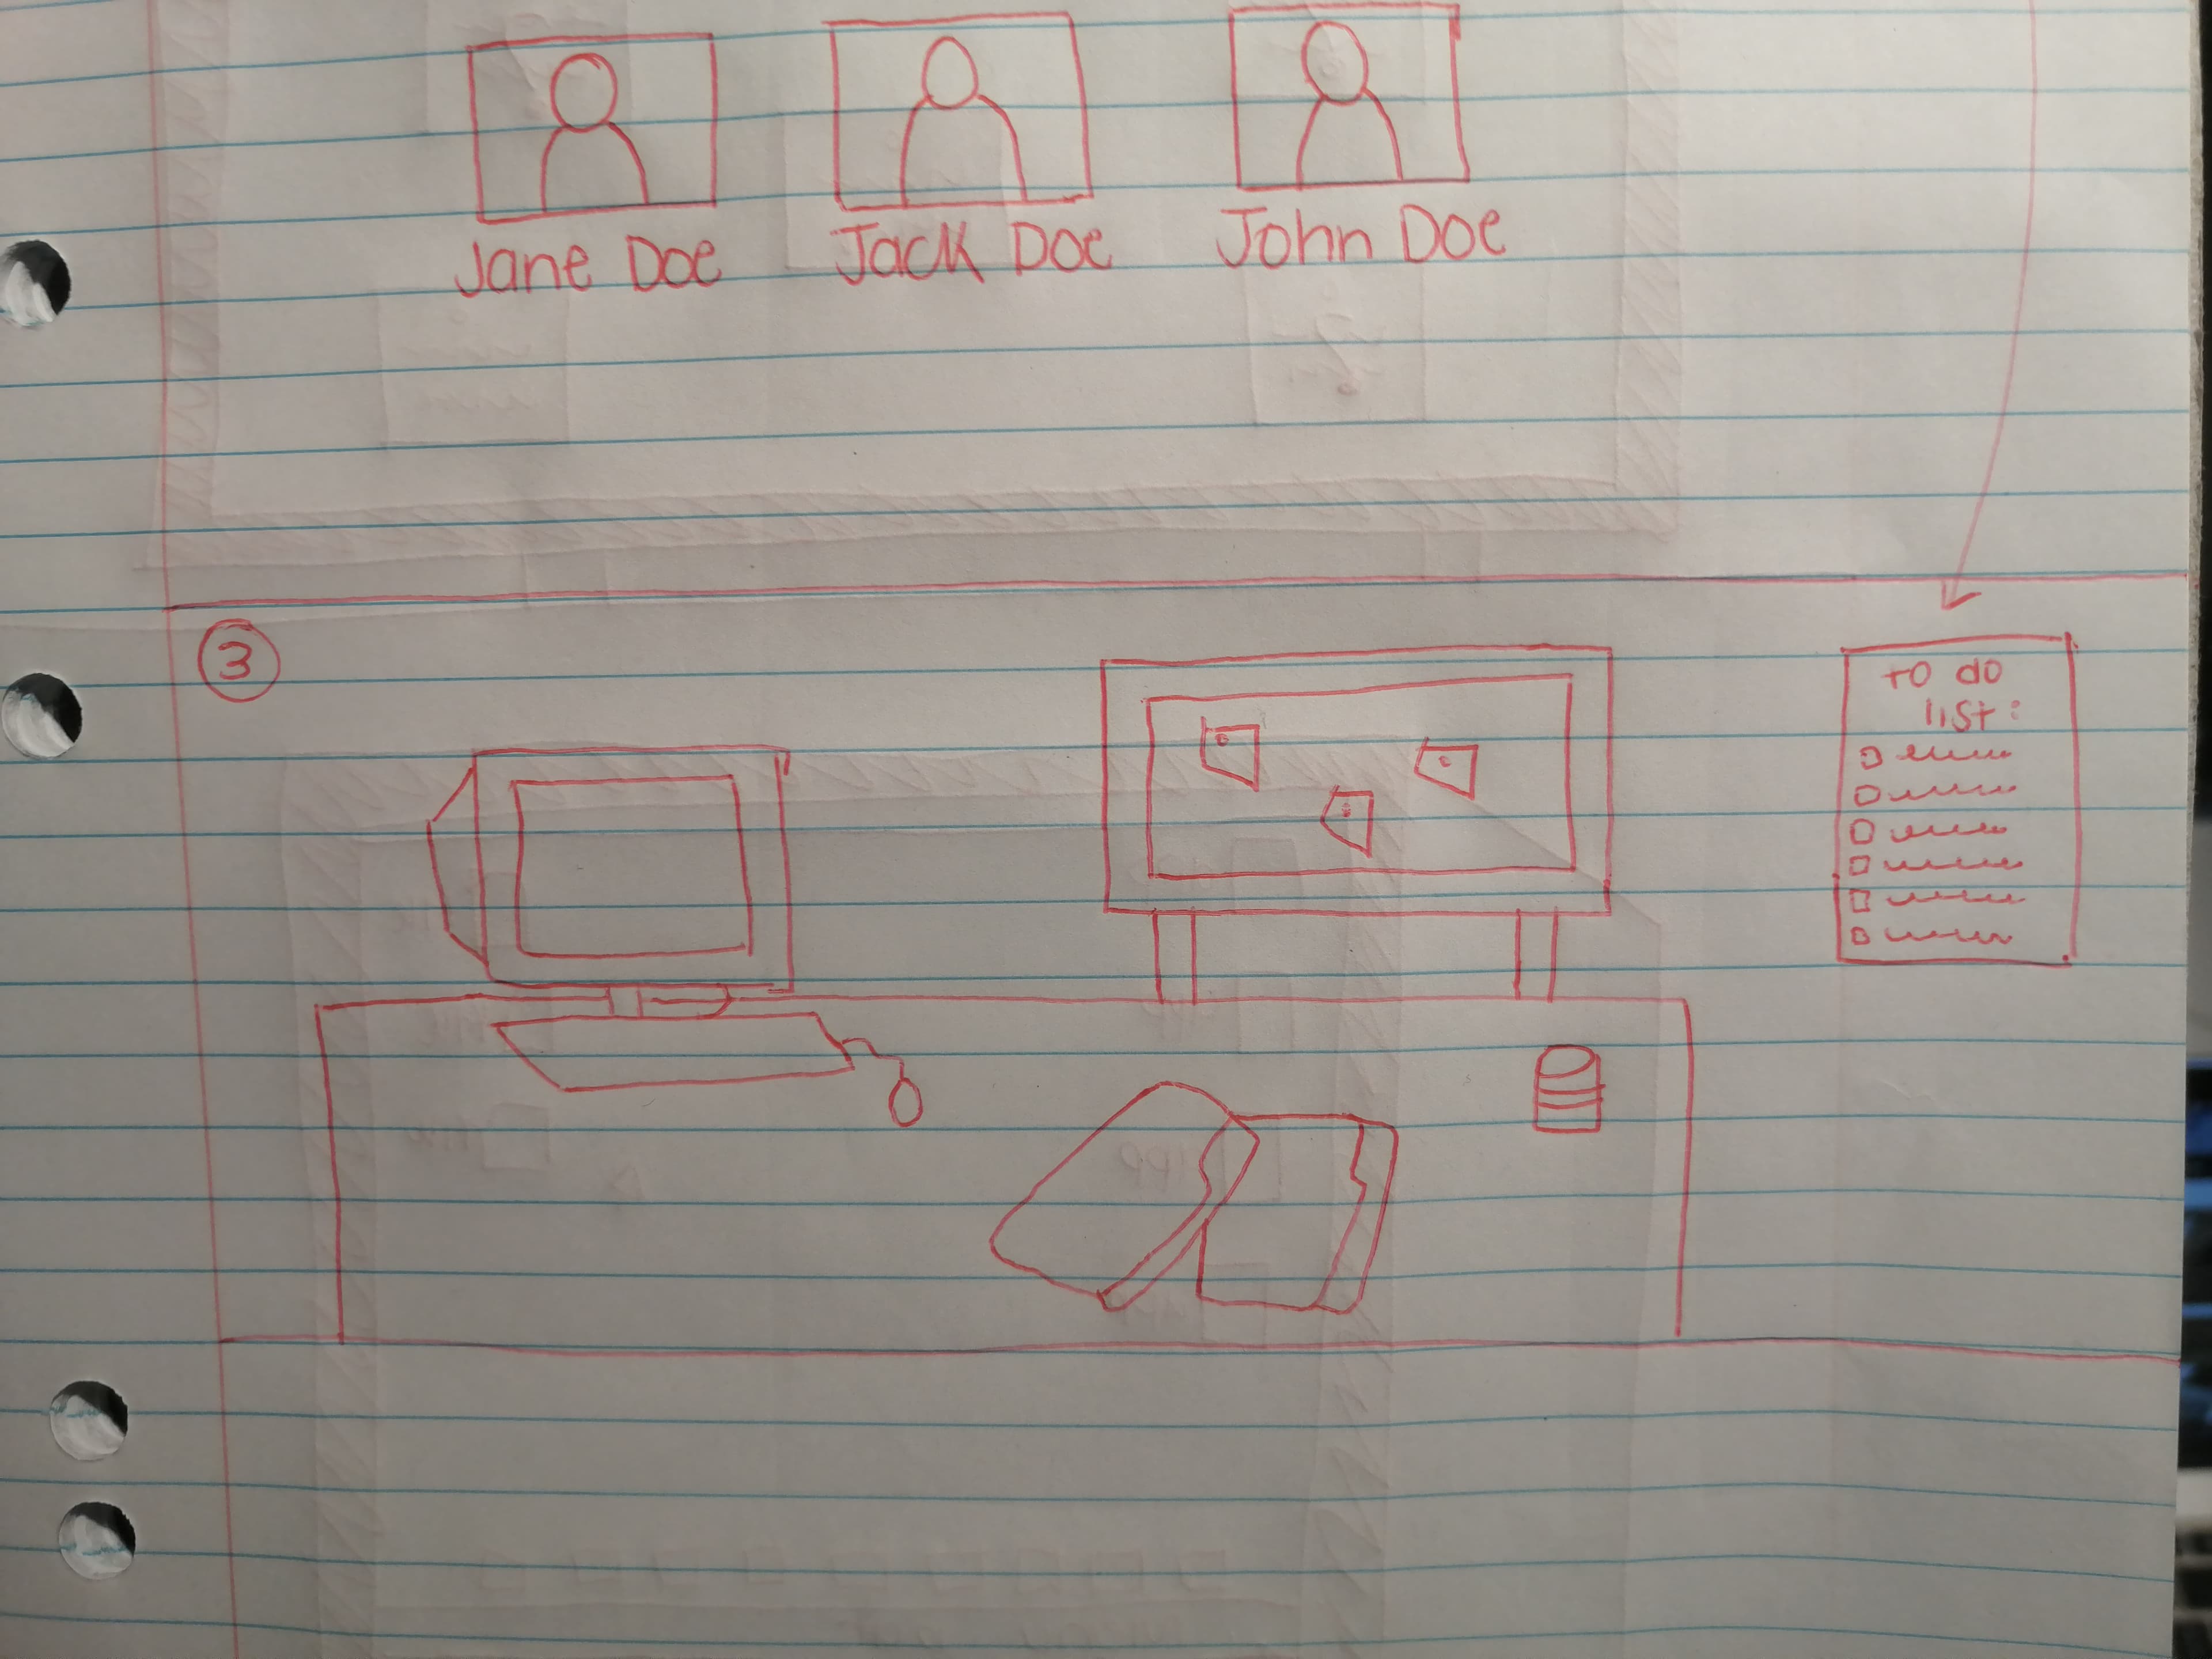 Jane Doe Jack Doe John Doe
3
TO do
list: